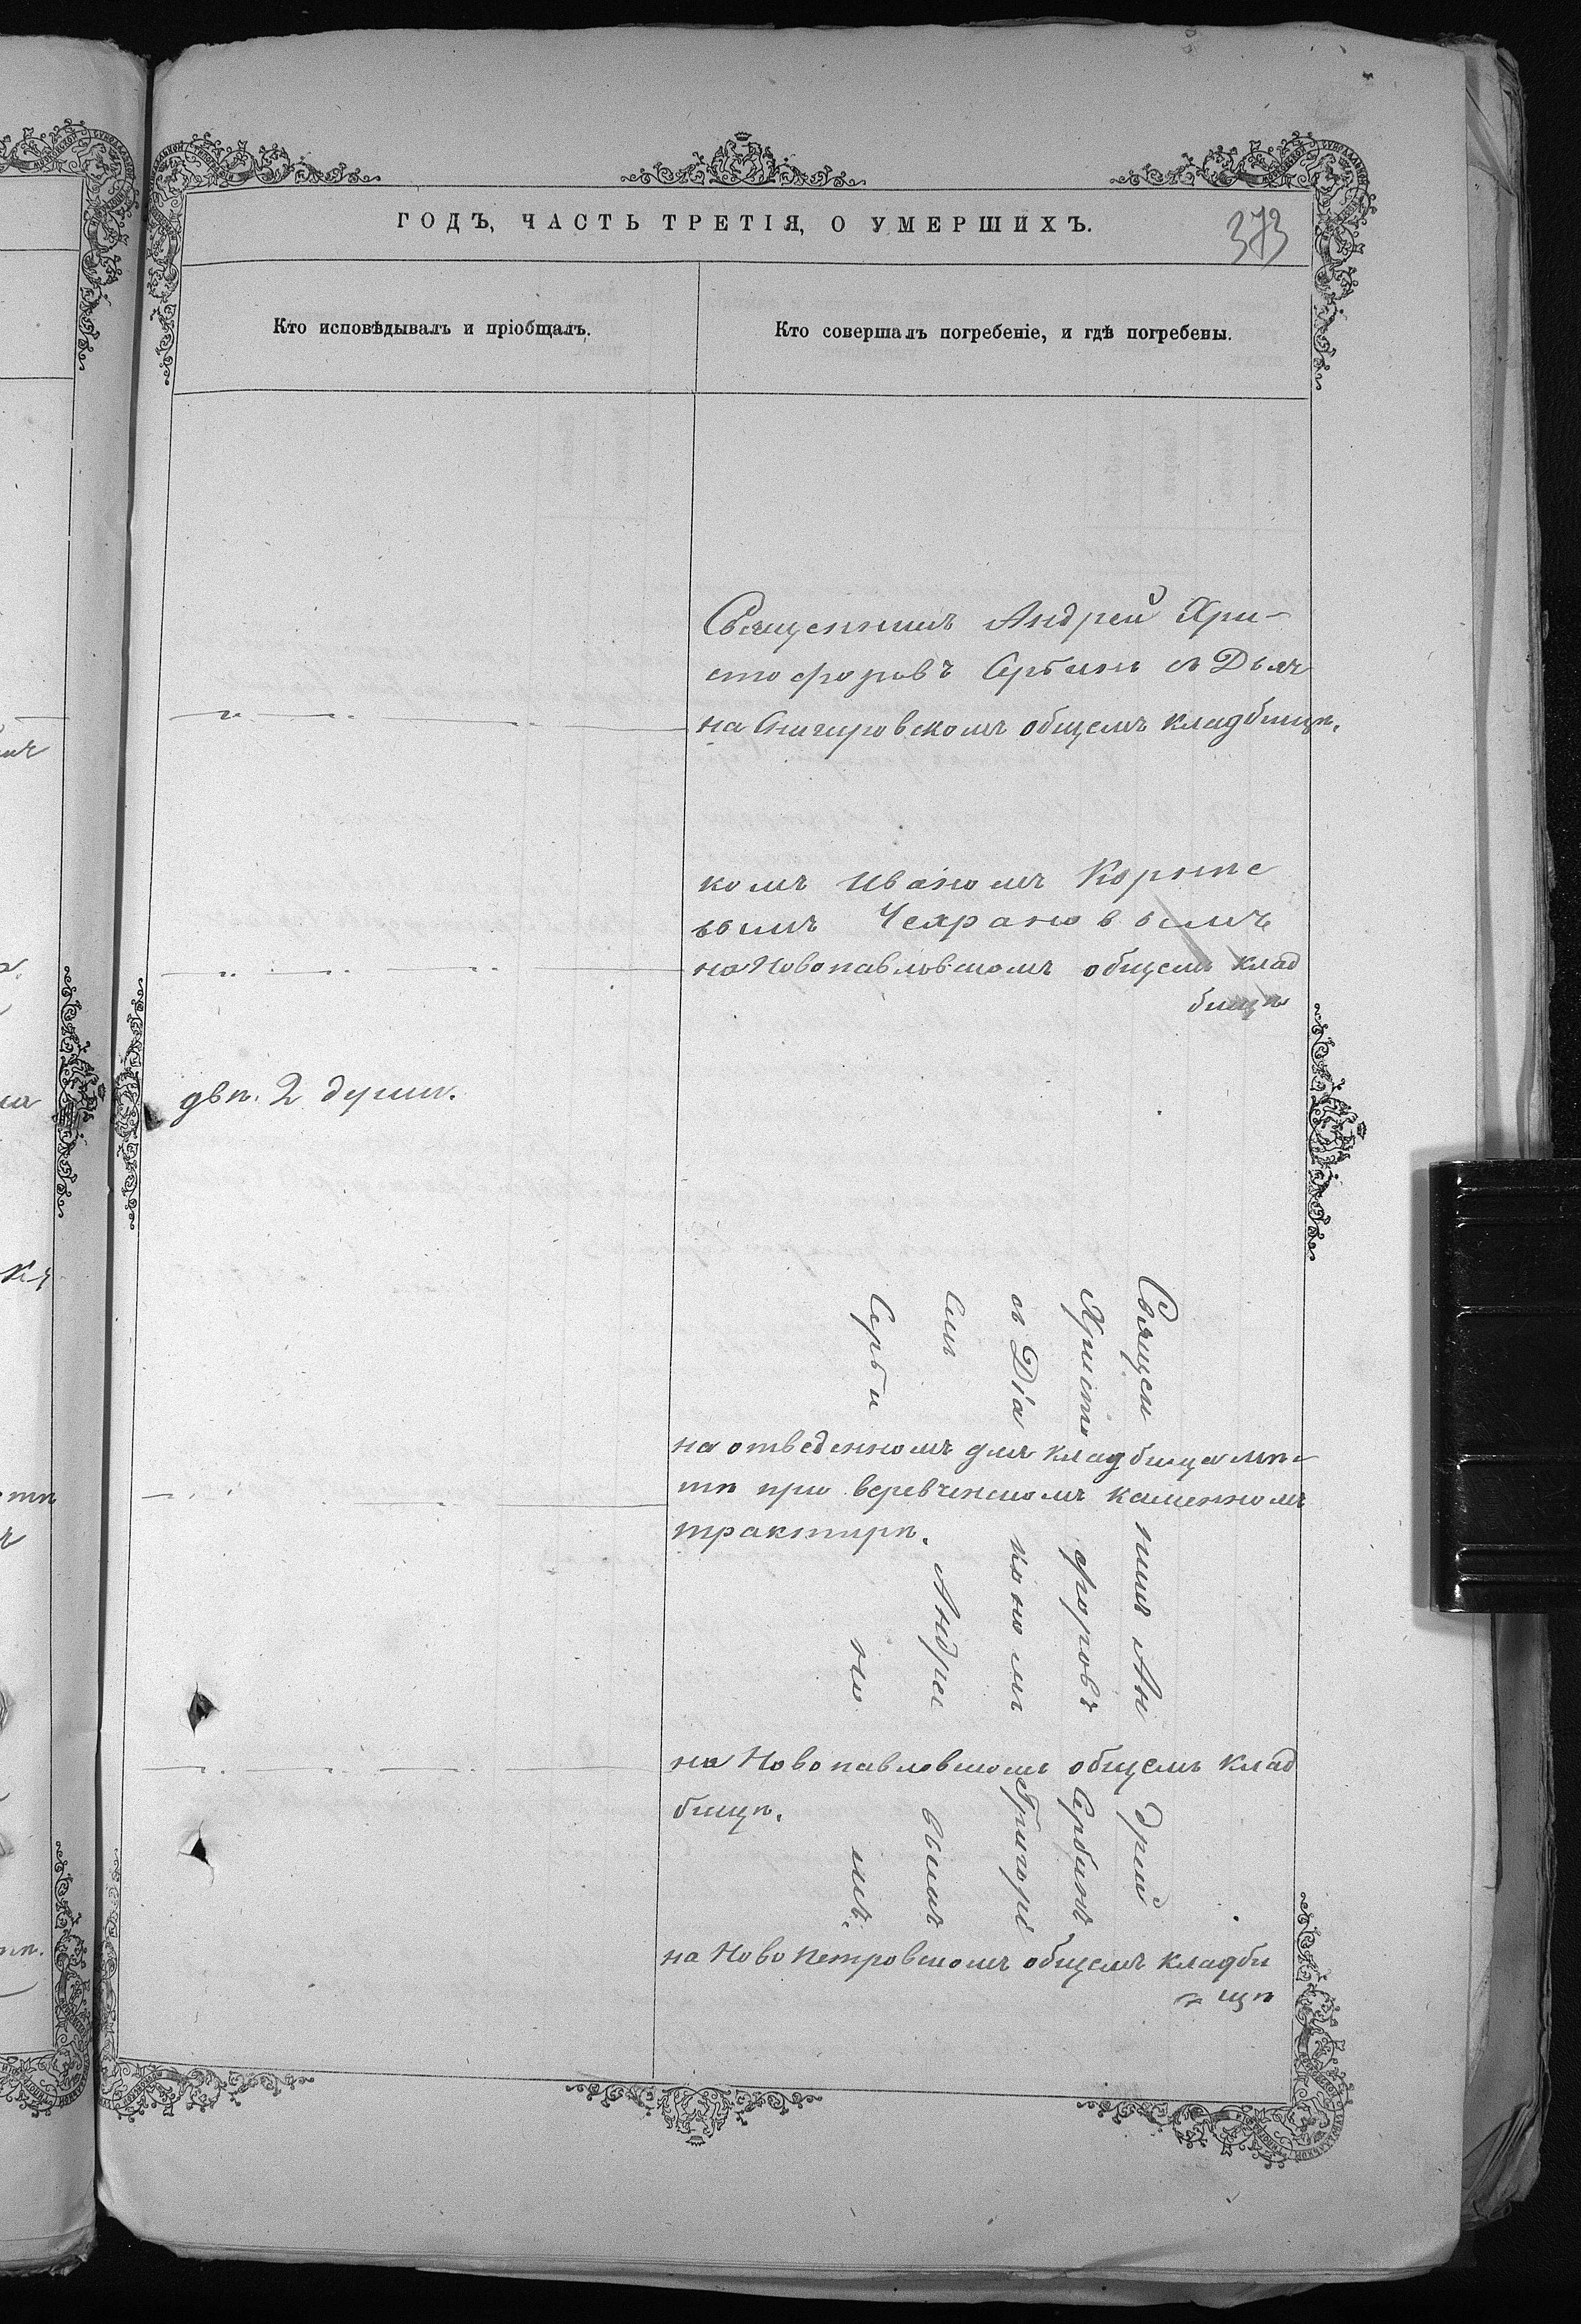 ГОДЪ, ЧАСТЬ ТРЕТІЯ, О УМЕРШИХЪ.
373
Кто исповѣдывалъ и пріобщалъ.
Кто совершалъ погребеніе, и гдѣ погребены.
Священникъ Андрей Хри-
стофоровъ Сербинъ съ Дьяч
на Снигировскомъ общемъ кладбищѣ.
комъ Иваномъ Корнѣе
вымъ Чехрановымъ
на Новопавловскомъ общемъ клад
бищѣ
двѣ. 2 души.
Священ никъ Ан дрей
Христо форовъ Сербинъ,
съ Діа кономъ Григорі
емъ Андрее вымъ
Серби но мъ.
на отведенномъ для кладбища мѣс
тѣ при веревченскомъ каменномъ
трактирѣ.
на Новопавловскомъ общемъ клад
бищѣ.
на Ново Петровскомъ общемъ кладби
щѣ